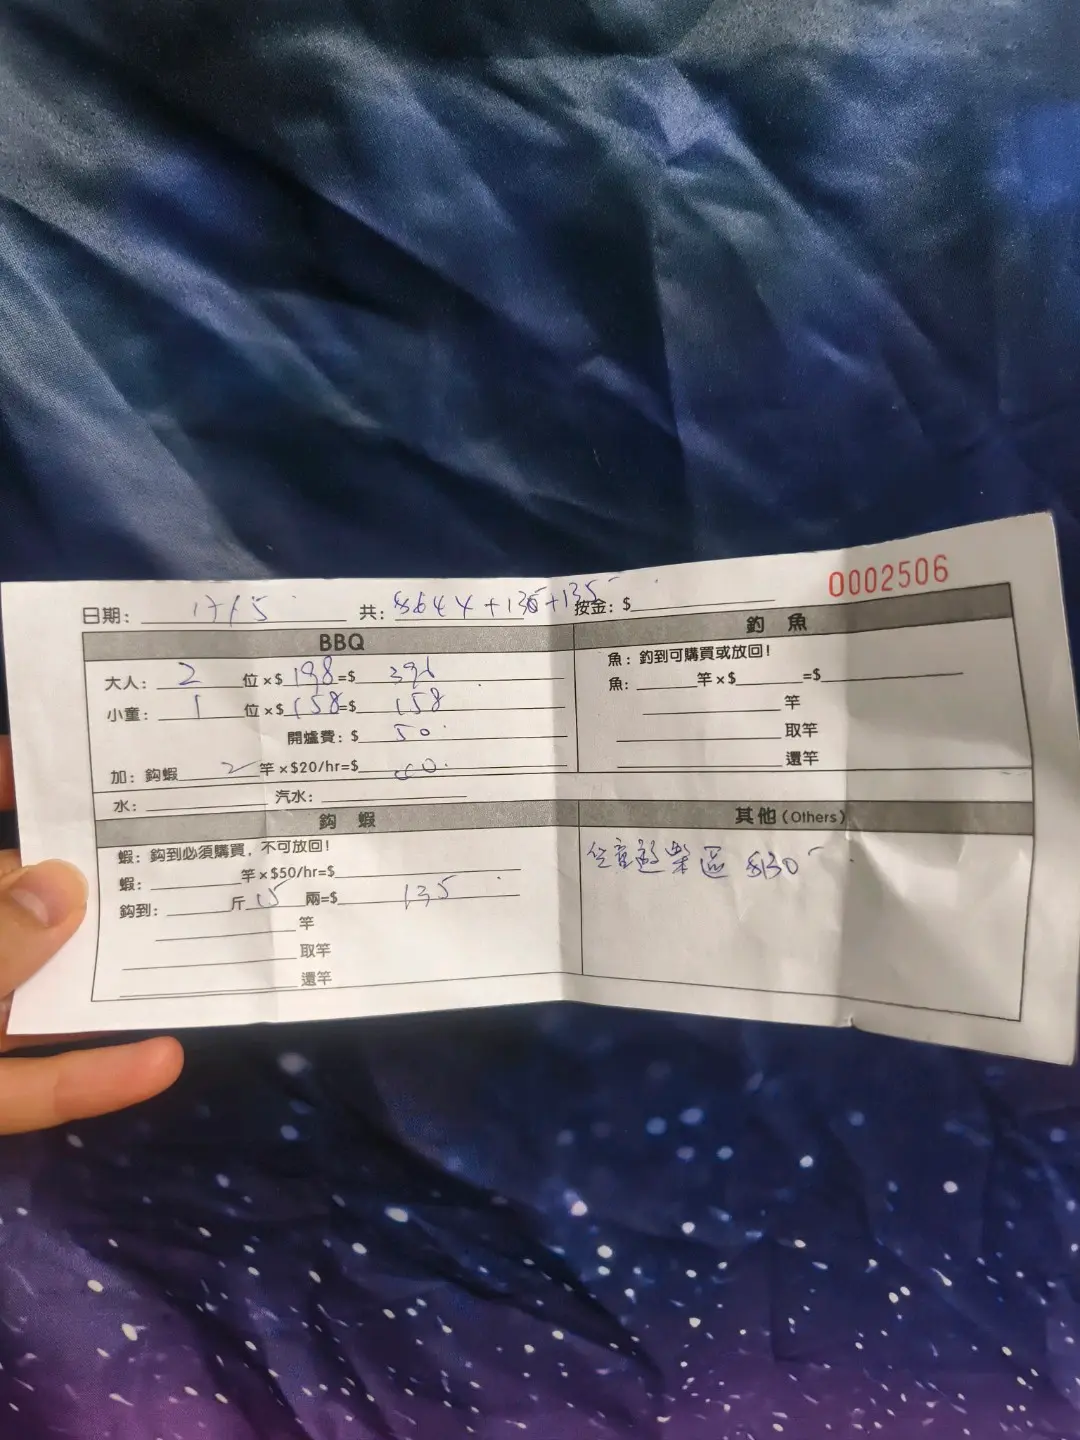 0002506
日期: 17/5 共: $644+130+135 按金: $
BBQ
大人: 2 位×$ 198=$ 396
小童: 1 位×$ 158=$ 158
開爐費: $ 50
加: 鈎蝦 2 竿×$20/hr=$
水: 汽水:
釣 魚
魚: 釣到可購買或放回!
魚: 竿×$ =$
竿
取竿
還竿
鈎 蝦
蝦: 鈎到必須購買, 不可放回!
蝦: 竿×$50/hr=$
鈎到: 斤 15 兩=$ 135
竿
取竿
還竿
其他(Others)
童遊樂區 $130